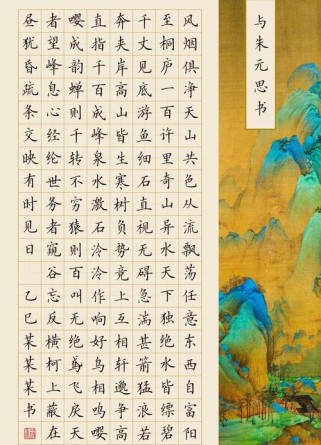 与朱元思书
风烟俱净天山共色从流飘荡任意东西自富阳
至桐庐一百许里奇山异水天下独绝水皆缥碧
千丈见底游鱼细石直视无碍急湍甚箭猛浪若
奔夹岸高山皆生寒树负势竞上互相轩邈争高
直指千百成峰泉水激石泠泠作响好鸟相鸣嘤
嘤成韵蝉则千转不穷猿则百叫无绝鸢飞戾天
者望峰息心经纶世务者窥谷忘反横柯上蔽在
昼犹昏疏条交映有时见日 乙巳某某某书